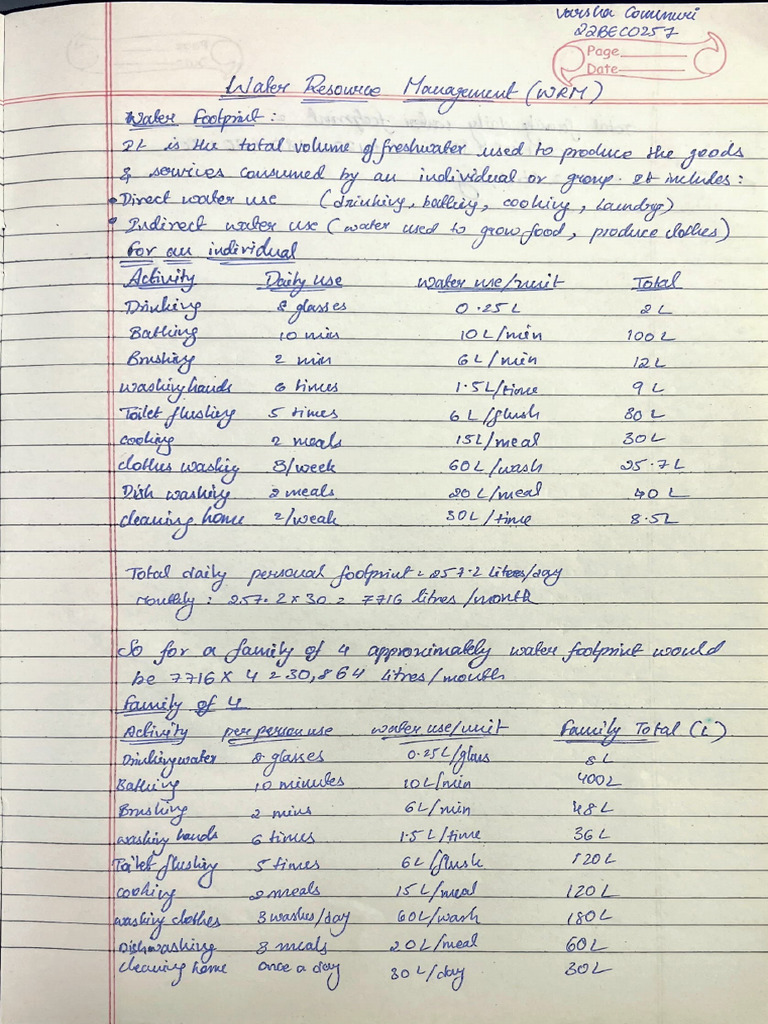 Varsha Commuri
22BEC0257
Page
Date
Water Resource Management (WRM)
Water Footprint :
It is the total volume of freshwater used to produce the goods
& services consumed by an individual or group. It includes :
• Direct water use (drinking, bathing, cooking, laundry)
• Indirect water use (water used to grow food, produce clothes)
For an individual
Activity Daily use water use/unit Total
Drinking 8 glasses 0.25L 2L
Bathing 10 mins 10L/min 100L
Brushing 2 min 6L/min 12L
washing hands 6 times 1.5L/time 9L
Toilet flushing 5 times 6L/flush 30L
cooking 2 meals 15L/meal 30L
clothes washing 3/week 60L/wash 25.7L
Dish washing 2 meals 20L/meal 40L
cleaning home 2/weak 30L/time 8.5L
Total daily personal footprint = 257.2 litres/day
monthly : 257.2 x 30 = 7716 litres/month
So for a family of 4 approximately water footprint would
be 7716 x 4 = 30,864 litres/month
Family of 4
Activity per person use water use/unit Family Total (L)
Drinking water 8 glasses 0.25L/glass 8L
Bathing 10 minutes 10L/min 400L
Brushing 2 mins 6L/min 48L
washing hands 6 times 1.5L/time 36L
Toilet flushing 5 times 6L/flush 120L
cooking 2 meals 15L/meal 120L
washing clothes 3 washes/day 60L/wash 180L
Dish washing 3 meals 20L/meal 60L
cleaning home once a day 30L/day 30L